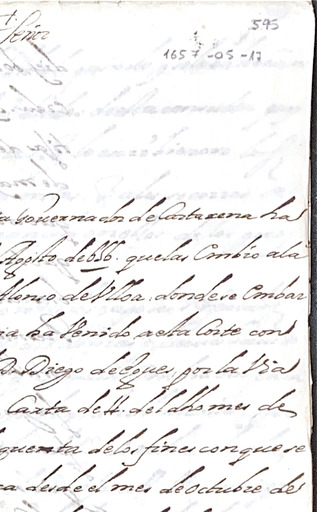 +
Señor
595
1657-05-17
a Gouernador de Cartaxena ha
Agosto de 656. que las Combio a la
Alonso de Vlloa, donde se Embar
na ha Venido a esta Corte con
D. Diego de Egues, por la Via
Carta de 4. del dho mes de
quenta de los fines con que se
ca desde el mes de octubre de